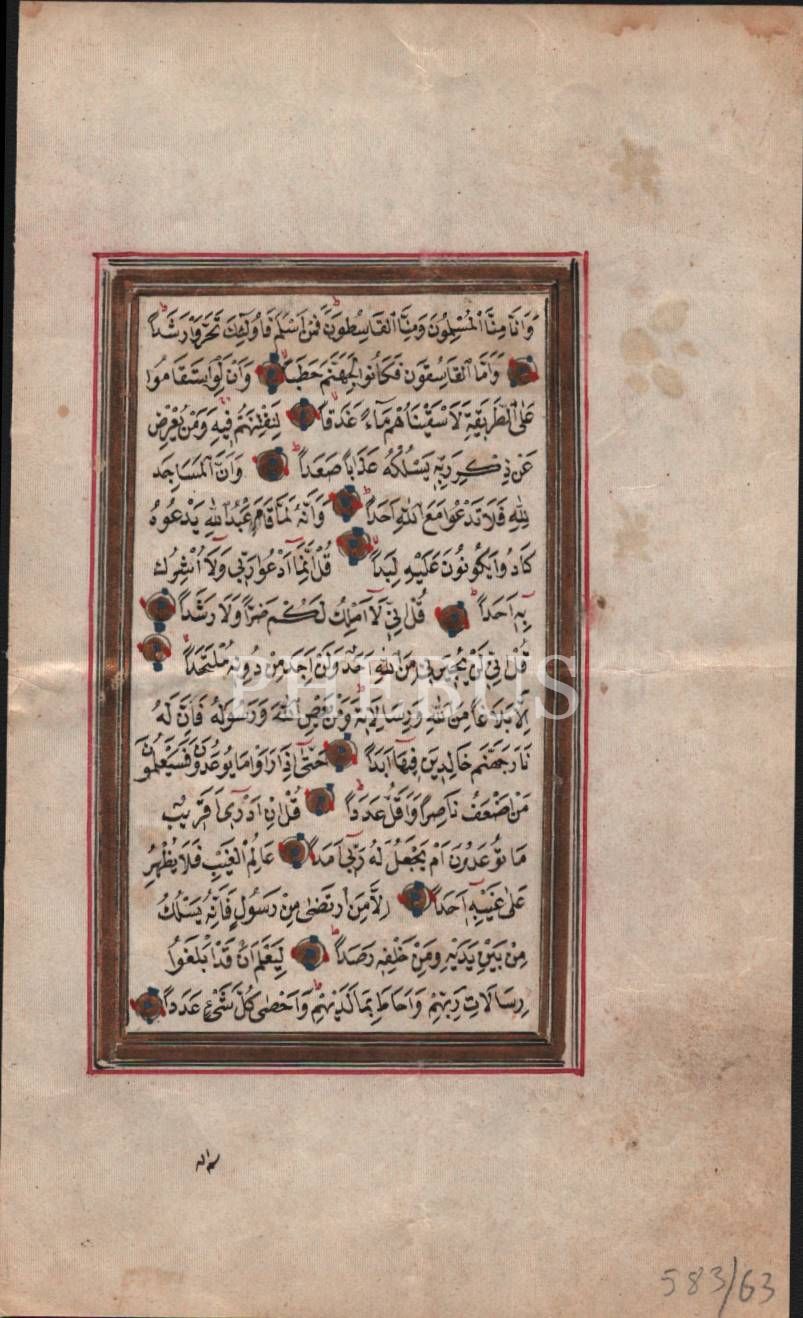 وَاَنَّا مِنَّا الْمُسْلِمُونَ وَمِنَّا الْقَاسِطُونَ فَمَنْ اَسْلَمَ فَاُولٰئِكَ تَحَرَّوْا رَشَداً
وَاَمَّا الْقَاسِطُونَ فَكَانُوا لِجَهَنَّمَ حَطَباً وَاَنْ لَوِ اسْتَقَامُوا
عَلَى الطَّرِيقَةِ لَاَسْقَيْنَاهُمْ مَاءً غَدَقاً لِنَفْتِنَهُمْ فِيهِ وَمَنْ يُعْرِضْ
عَنْ ذِكْرِ رَبِّهِ يَسْلُكْهُ عَذَاباً صَعَداً وَاَنَّ الْمَسَاجِدَ
لِلّٰهِ فَلَا تَدْعُوا مَعَ اللّٰهِ اَحَداً وَاَنَّهُ لَمَّا قَامَ عَبْدُ اللّٰهِ يَدْعُوهُ
كَادُوا يَكُونُونَ عَلَيْهِ لِبَداً قُلْ اِنَّمَا اَدْعُوا رَبِّي وَلَا اُشْرِكُ
بِهِ اَحَداً قُلْ اِنِّي لَا اَمْلِكُ لَكُمْ ضَرًّا وَلَا رَشَداً
قُلْ اِنِّي لَنْ يُجِيرَنِي مِنَ اللّٰهِ اَحَدٌ وَلَنْ اَجِدَ مِنْ دُونِهِ مُلْتَحَداً
اِلَّا بَلَاغاً مِنَ اللّٰهِ وَرِسَالَاتِهِ وَمَنْ يَعْصِ اللّٰهَ وَرَسُولَهُ فَاِنَّ لَهُ
نَارَ جَهَنَّمَ خَالِدِينَ فِيهَا اَبَداً حَتّٰى اِذَا رَاَوْا مَا يُوعَدُونَ فَسَيَعْلَمُونَ
مَنْ اَضْعَفُ نَاصِراً وَاَقَلُّ عَدَداً قُلْ اِنْ اَدْرِي اَقَرِيبٌ
مَا تُوعَدُونَ اَمْ يَجْعَلُ لَهُ رَبِّي اَمَداً عَالِمُ الْغَيْبِ فَلَا يُظْهِرُ
عَلٰى غَيْبِهِ اَحَداً اِلَّا مَنِ ارْتَضٰى مِنْ رَسُولٍ فَاِنَّهُ يَسْلُكُ
مِنْ بَيْنِ يَدَيْهِ وَمِنْ خَلْفِهِ رَصَداً لِيَعْلَمَ اَنْ قَدْ اَبْلَغُوا
رِسَالَاتِ رَبِّهِمْ وَاَحَاطَ بِمَا لَدَيْهِمْ وَاَحْصٰى كُلَّ شَيْءٍ عَدَداً
PHEBUS
583/63